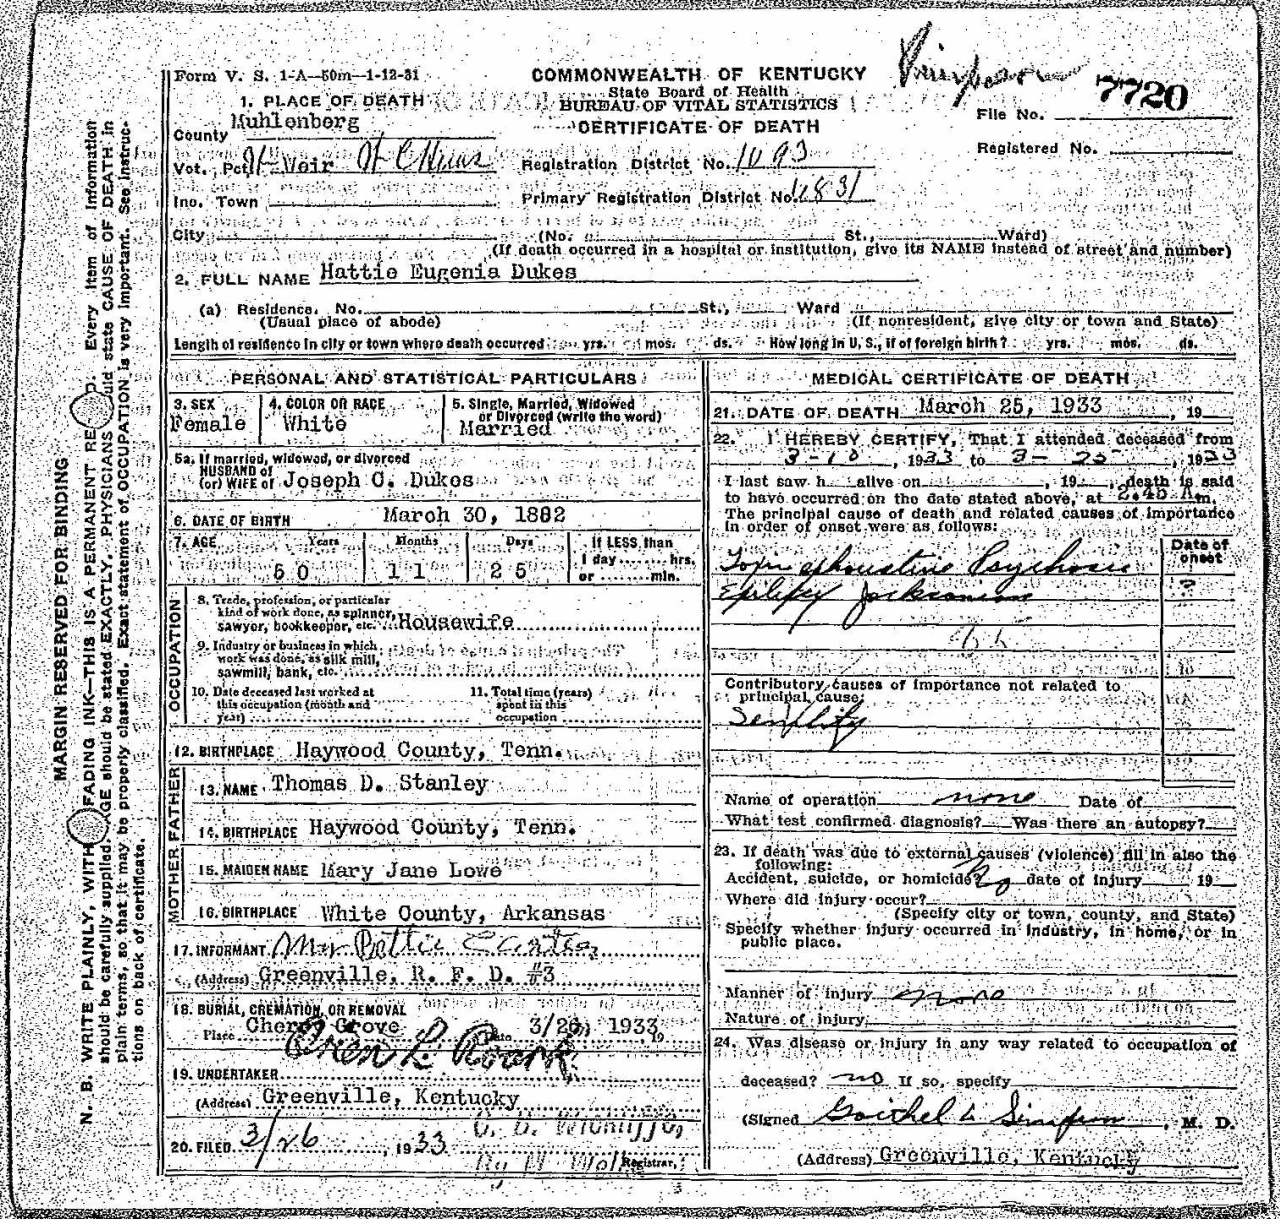 Form V. S. 1-A—50m—1-12-31
COMMONWEALTH OF KENTUCKY
State Board of Health
BUREAU OF VITAL STATISTICS
CERTIFICATE OF DEATH
7720
File No.
Registered No.
1. PLACE OF DEATH
County Muhlenberg
Vot. Pct. Weir
Registration District No. 1093
Inc. Town
Primary Registration District No. 6831
City (No. St., Ward)
(If death occurred in a hospital or institution, give its NAME instead of street and number)
2. FULL NAME Hattie Eugenia Dukes
(a) Residence. No. St., Ward
(Usual place of abode) (If nonresident, give city or town and State)
Length of residence in city or town where death occurred yrs. mos. ds. How long in U. S., if of foreign birth? yrs. mos. ds.
PERSONAL AND STATISTICAL PARTICULARS
3. SEX Female
4. COLOR OR RACE White
5. Single, Married, Widowed
or Divorced (write the word)
Married
5a. If married, widowed, or divorced
HUSBAND of
(or) WIFE of Joseph C. Dukes
6. DATE OF BIRTH March 30, 1882
7. AGE Years Months Days If LESS than
1 day hrs.
50 11 25 or min.
OCCUPATION
8. Trade, profession, or particular
kind of work done, as spinner,
sawyer, bookkeeper, etc. Housewife
9. Industry or business in which
work was done, as silk mill,
sawmill, bank, etc.
10. Date deceased last worked at
this occupation (month and
year)
11. Total time (years)
spent in this
occupation
12. BIRTHPLACE Haywood County, Tenn.
FATHER
13. NAME Thomas D. Stanley
14. BIRTHPLACE Haywood County, Tenn.
MOTHER
15. MAIDEN NAME Mary Jane Lowe
16. BIRTHPLACE White County, Arkansas
17. INFORMANT
(Address) Greenville, R. F. D. #3
18. BURIAL, CREMATION, OR REMOVAL
Place Cherry Grove Date 3/26, 1933, 19
Oren L. Roark
19. UNDERTAKER
(Address) Greenville, Kentucky
20. FILED 3/26, 1933
Registrar.
MEDICAL CERTIFICATE OF DEATH
21. DATE OF DEATH March 25, 1933, 19
22. I HEREBY CERTIFY, That I attended deceased from
3-10, 1933 to 3-25, 1933
I last saw h alive on , 19 , death is said
to have occurred on the date stated above, at 2:45 A m.
The principal cause of death and related causes of importance
in order of onset were as follows:
Date of
onset
Toxin exhaustive Psychosis
?
Epilepsy Jacksonian
Contributory causes of importance not related to
principal cause:
Name of operation none Date of
What test confirmed diagnosis? Was there an autopsy?
23. If death was due to external causes (violence) fill in also the
following:
Accident, suicide, or homicide? No date of injury 19
Where did injury occur?
(Specify city or town, county, and State)
Specify whether injury occurred in industry, in home, or in
public place.
Manner of injury none
Nature of injury
24. Was disease or injury in any way related to occupation of
deceased? no If so, specify
(Signed Simpson, M. D.
(Address) Greenville, Kentucky
MARGIN RESERVED FOR BINDING
N. B. WRITE PLAINLY, WITH FADING INK—THIS IS A PERMANENT RE D. Every item of information
should be carefully supplied. AGE should be stated EXACTLY. PHYSICIANS should state CAUSE OF DEATH in
plain terms, so that it may be properly classified. Exact statement of OCCUPATION is very important. See instruc-
tions on back of certificate.